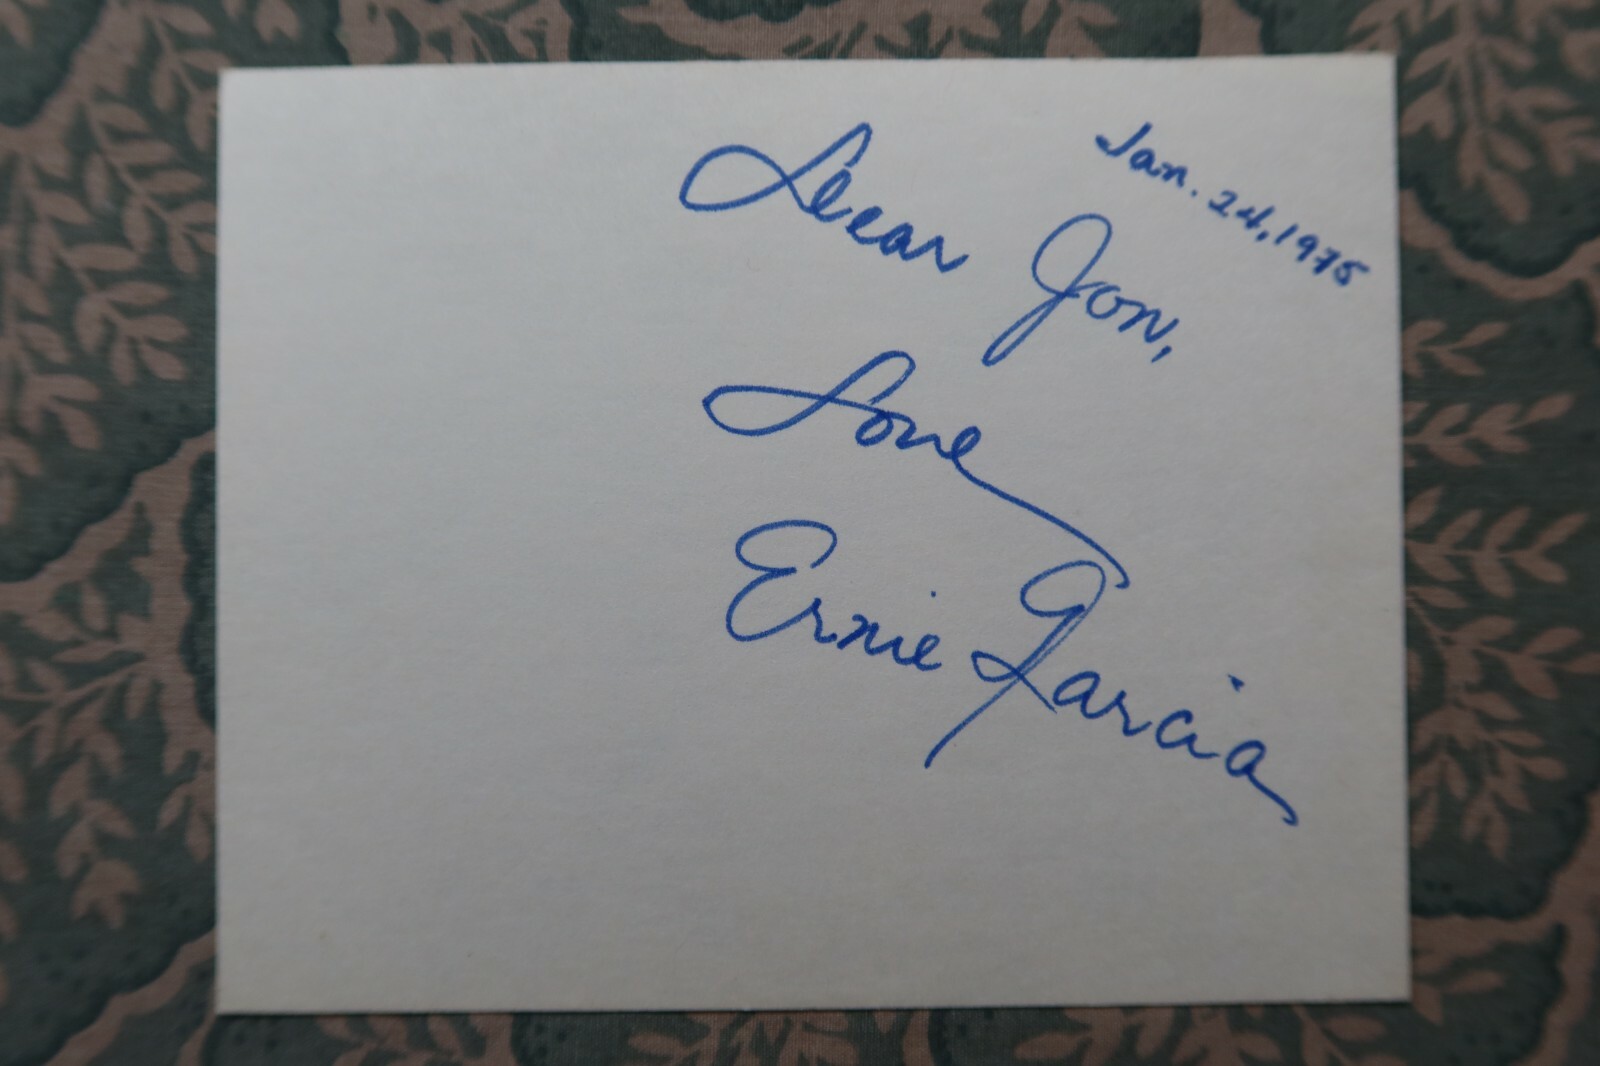 Jan. 24, 1975
Dear Jon,
Love
Ernie Garcia